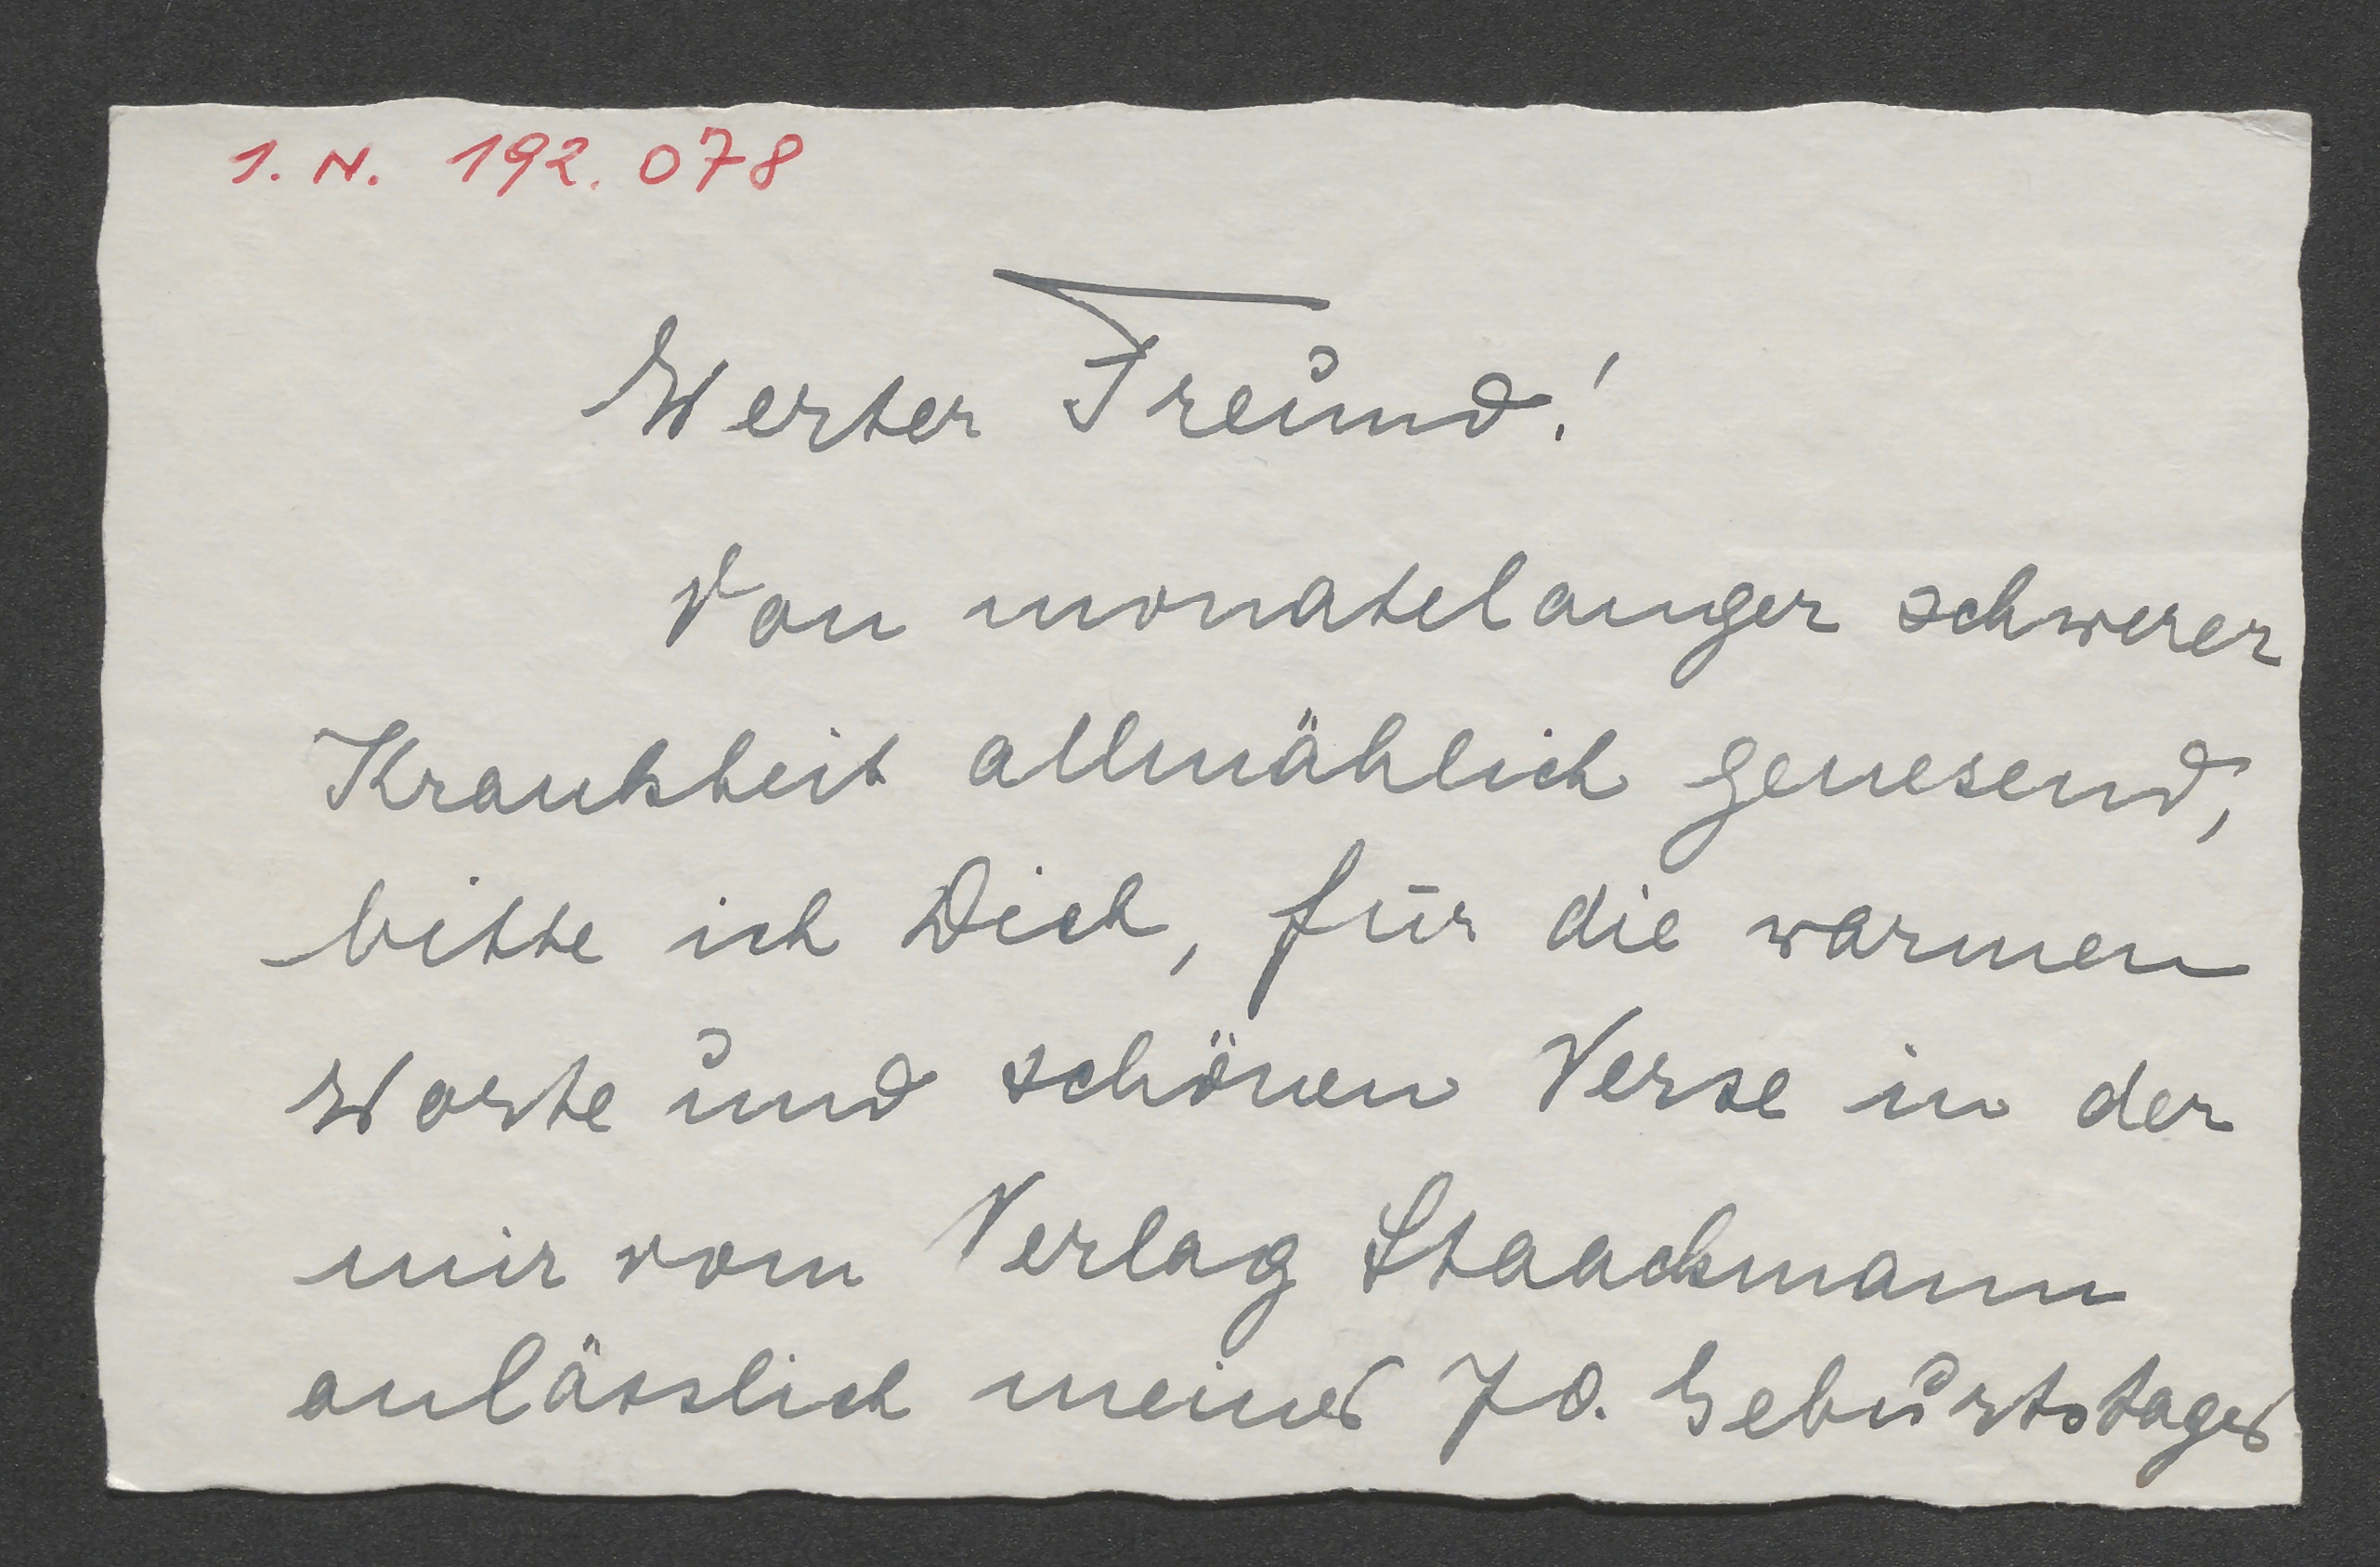 1. N. 192.078
Werter Freund!
Von monatelanger schwerer
Krankheit allmählich genesend,
bitte ich Dich, für die warmen
Worte und schönen Verse in der
mir vom Verlag Staackmann
anlässlich meines 70. Geburtstages